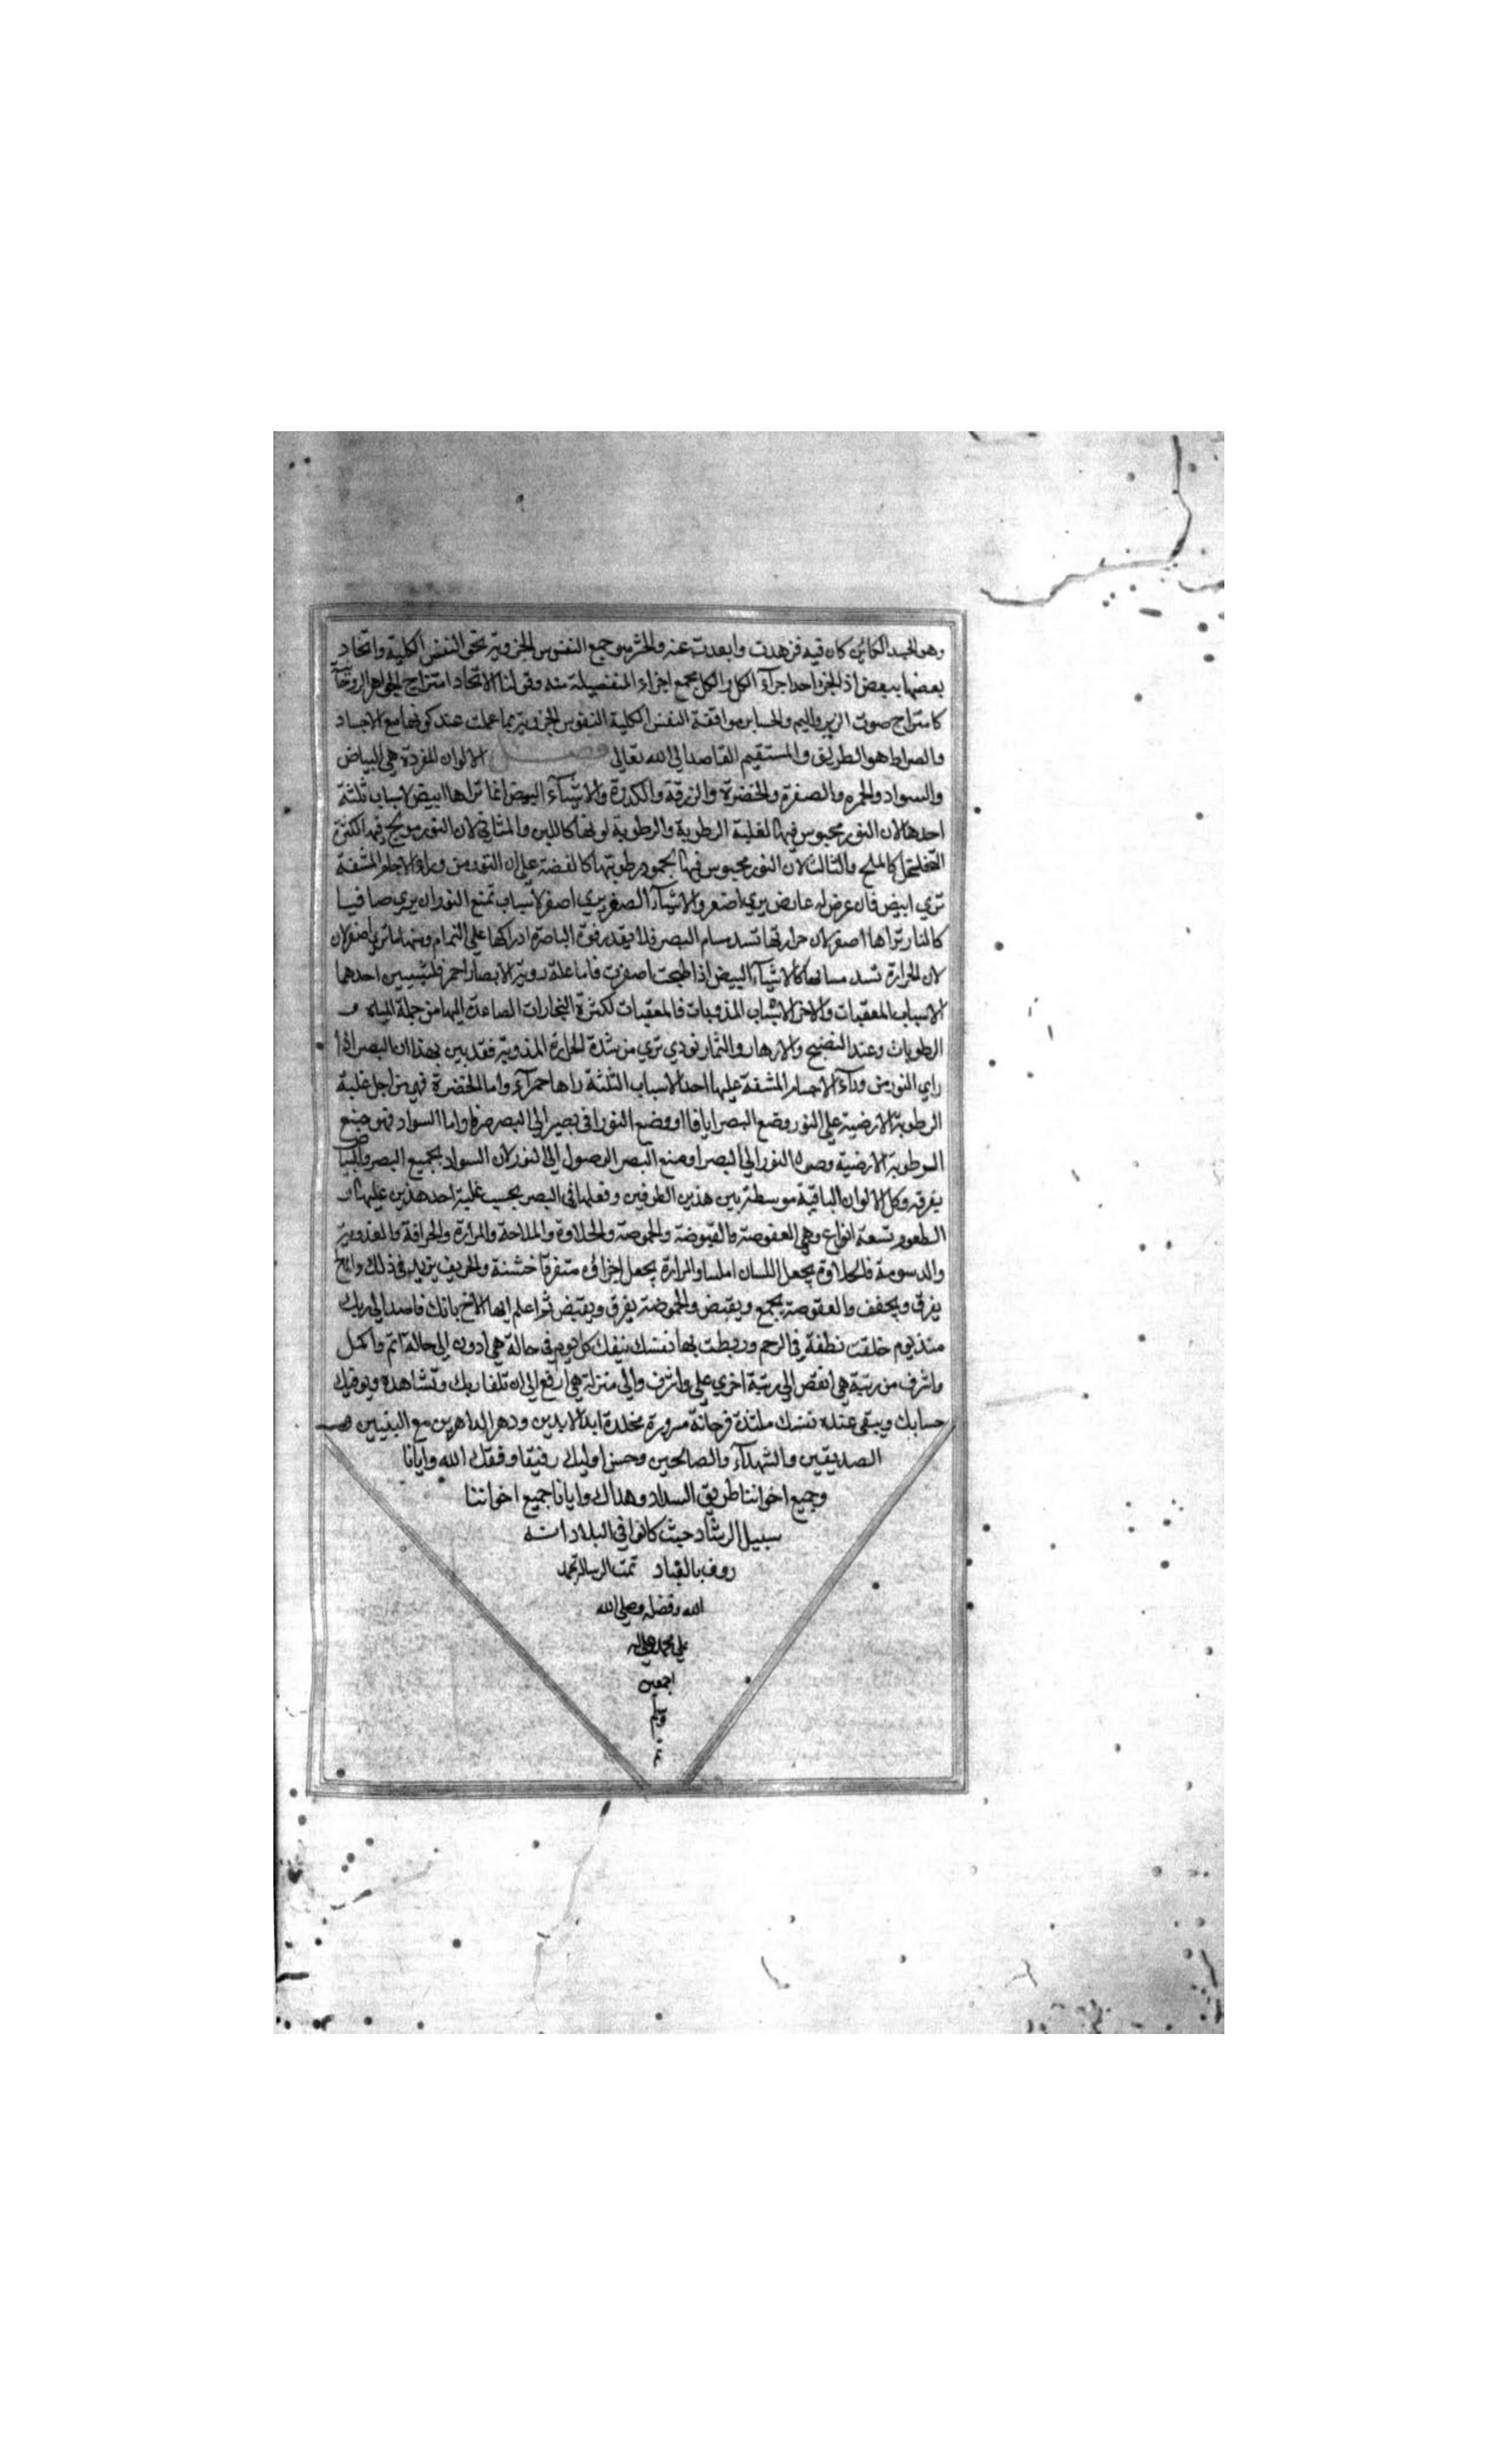 وهو الجسد الكائن كان فيه فزهدت وابعدت عنه والحشر هو جمع النفوس الجزوية نحو النفس الكلية واتحاد
بعضها ببعض اذ الجزو احد اجزآء الكل والكل بجمع اجزاء المنفصلة منه وقولنا الاتحاد امتزاج الجواهر الروحانية
كامتزاج صوت الزير واليم والحساب موافقة النفس الكلية النفوس الجزوية بما عملت عند كونها مع الاجساد
والصراط هو الطريق والمستقيم القاصد الى الله تعالى فصل الالوان المفردة هي البياض
والسواد والحمره والصفرة والخضرة والزرقة والكدرة والاشيآء البيض انما تراها ابيض لاسباب ثلثة
احدها لان النور محبوس فيها لغلبة الرطوبة والرطوبة لونها كاللبن والثاني لان النور فيه لكثرة
كالملح والثالث لان النور محبوس فيها بجمود رطوبتها كالفضة على ان النور من ورآء المشفة
تري ابيض فان عرض له عارض يري اصفر والاشيآء الصفر يري اصفر لاسباب تمنع النور ان يري صافيا
كالنار تراها اصفر لان حرارتها تسد مسام البصر فلا يقدر قوة الباصرة ادراكها على التمام ومنها ما تري اصفر لان
لان الحرارة تسد مسامها كالاشيآء البيض اذا طبخت اصفرت فاما علة روية الابصار احمر فلشيين احدهما
الاسباب المعقبات والاخر الاسباب المذوبات فالمعقبات لكثرة البخارات الصاعدة اليها من جملة المياه و
الرطوبات وعند النضج والازهار والثمار تري من شدة الحرارة المذوبة فقد بين بهذا ان البصر اذا
راي النور من ورآء الاجسام المشفة عليها احد الاسباب الثلثة راها حمرآء واما الخضرة فهي من اجل غلبة
الرطوبة الارضية على النور ومنع البصر او وضع النور في بصير الى البصر واما السواد فهو منع
الرطوبة الارضية وصول النور الى البصر او منع البصر الوصول الى النور لان السواد يجمع البصر والبياض
يفرقه وكل الالوان الباقية موسطة بين هذين الطرفين وفعلها في البصر بحسب غلبة احد هذين عليها و
الطعوم تسعة انواع وهي العفوصة والقبوضة والحموضة والحلاوة والملاحة والمرارة والحرافة والعذوبة
والدسومة فالحلاوة يجعل اللسان املسا والمرارة يجعل اجزاؤه متفرقا خشنة والحريف يزيد في ذلك والملح
يفرق ويجفف والعفوصة يجمع ويقبض والحموضة يفرق ويقبض ثم اعلم ايها الاخ بانك قاصد الى ربك
منذ يوم خلقت نطفة في الرحم وربطت بها نفسك ينقلك كل يوم في حالة هي ادون الى حالة اتم واكمل
واشرف من رتبة هي انقص الى رتبة اخري على واشرف والى منزلة هي ارفع الى ان تلقا ربك وتشاهده ويوفيك
حسابك ويبقى عنده نفسك ملتذة فرحانة مسرورة مخلدة ابد الابدين ودهر الداهرين مع النبيين و
الصديقين والشهدآء والصالحين وحسن اوليك رفيقا وفقك الله وايانا
وجميع اخواننا طريق السداد وهداك وايانا جميع اخواننا
سبيل الرشاد حيث كانوا في البلاد انه
روف بالعباد تمت الرسالة بحمد
الله وفضله وصلى الله
على محمد واله
اجمعين
وسلم